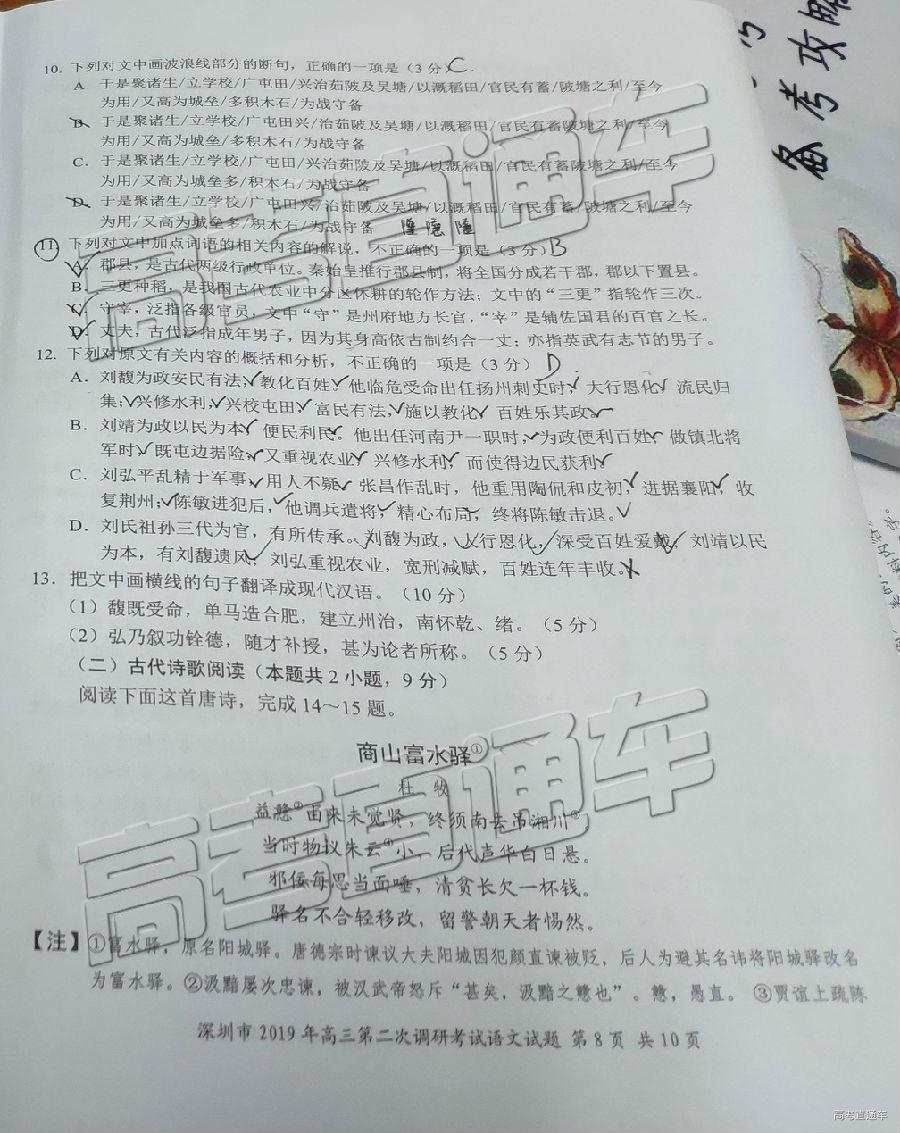 10. 下列对文中画波浪线部分的断句，正确的一项是（3分）C
A. 于是聚诸生/立学校/广屯田/兴治茹陂及吴塘/以溉稻田/官民有蓄/陂塘之利/至今
为用/又高为城垒/多积木石/为战守备
B. 于是聚诸生/立学校/广屯田兴/治茹陂及吴塘/以溉稻田/官民有蓄陂塘之利/至今
为用/又高为城垒/多积木石/为战守备
C. 于是聚诸生/立学校/广屯田/兴治茹陂及吴塘/以溉稻田/官民有蓄陂塘之利/至今
为用/又高为城垒多/积木石/为战守备
D. 于是聚诸生/立学校/广屯田兴/治茹陂及吴塘/以溉稻田/官民有蓄/陂塘之利/至今
为用/又高为城垒多/积木石/为战守备
11. 下列对文中加点词语的相关内容的解说，不正确的一项是（3分）B
A. 郡县，是古代两级行政单位。秦始皇推行郡县制，将全国分成若干郡，郡以下置县。
B. 三更种稻，是我国古代农业中分区休耕的轮作方法；文中的“三更”指轮作三次。
C. 守宰，泛指各级官员，文中“守”是州府地方长官，“宰”是辅佐国君的百官之长。
D. 丈夫，古代泛指成年男子，因为其身高依古制约合一丈；亦指英武有志节的男子。
12. 下列对原文有关内容的概括和分析，不正确的一项是（3分）D
A. 刘馥为政安民有法，教化百姓。他临危受命出任扬州刺史时，大行恩化，流民归
集；兴修水利，兴校屯田，富民有法；施以教化，百姓乐其政。
B. 刘靖为政以民为本，便民利民。他出任河南尹一职时，为政便利百姓，做镇北将
军时，既屯边据险，又重视农业，兴修水利，而使得边民获利。
C. 刘弘平乱精于军事，用人不疑。张昌作乱时，他重用陶侃和皮初，进据襄阳，收
复荆州；陈敏进犯后，他调兵遣将，精心布局，终将陈敏击退。
D. 刘氏祖孙三代为官，有所传承。刘馥为政，大行恩化，深受百姓爱戴；刘靖以民
为本，有刘馥遗风；刘弘重视农业，宽刑减赋，百姓连年丰收。
13. 把文中画横线的句子翻译成现代汉语。（10分）
（1）馥既受命，单马造合肥，建立州治，南怀乾、绪。（5分）
（2）弘乃叙功铨德，随才补授，甚为论者所称。（5分）
（二）古代诗歌阅读（本题共2小题，9分）
阅读下面这首唐诗，完成14～15题。
商山富水驿①
杜 牧
益戆②由来未觉贤，终须南去吊湘川③。
当时物议朱云④小，后代声华白日悬。
邪佞每思当面唾，清贫长欠一杯钱。
驿名不合轻移改，留警朝天者惕然。
【注】①富水驿，原名阳城驿。唐德宗时谏议大夫阳城因犯颜直谏被贬，后人为避其名讳将阳城驿改名
为富水驿。②汲黯屡次忠谏，被汉武帝怒斥“甚矣，汲黯之戆也”。戆，愚直。③贾谊上疏陈
深圳市2019年高三第二次调研考试语文试题 第8页 共10页
备考攻略
高考直通车
高考直通车
高考直通车